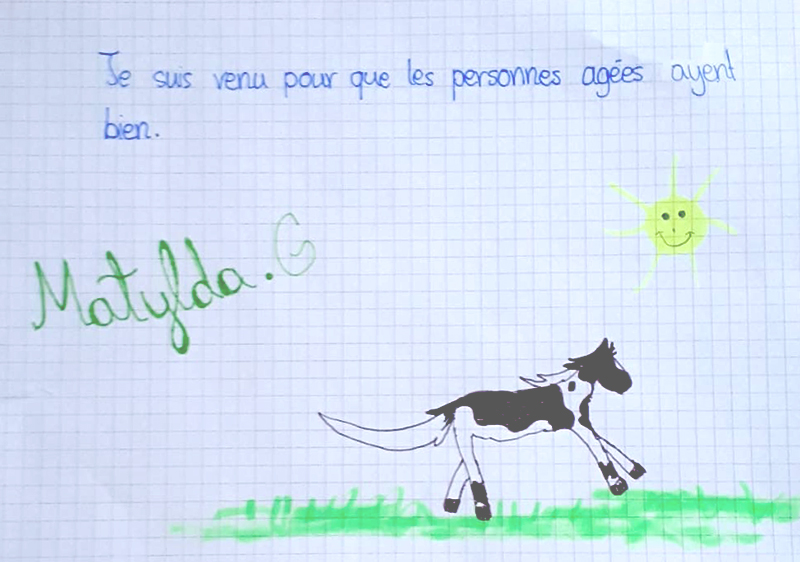 Je suis venu pour que les personnes agées ayent
bien.
Matylda.G